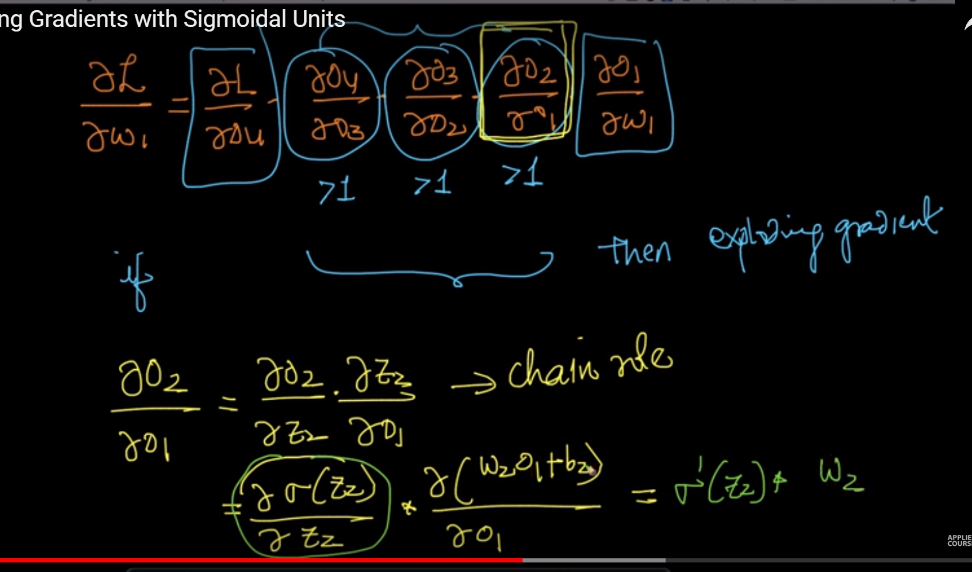 ng Gradients with Sigmoidal Units
∂L/∂w₁ = ∂L/∂O₄ · ∂O₄/∂O₃ · ∂O₃/∂O₂ · ∂O₂/∂O₁ ∂O₁/∂w₁
>1 >1 >1
if then exploding gradient
∂O₂/∂O₁ = ∂O₂/∂z₂ · ∂z₂/∂O₁ → chain rule
= ∂σ(z₂)/∂z₂ * ∂(w₂O₁+b₂)/∂O₁ = σ'(z₂) * w₂
APPLIE
COURS